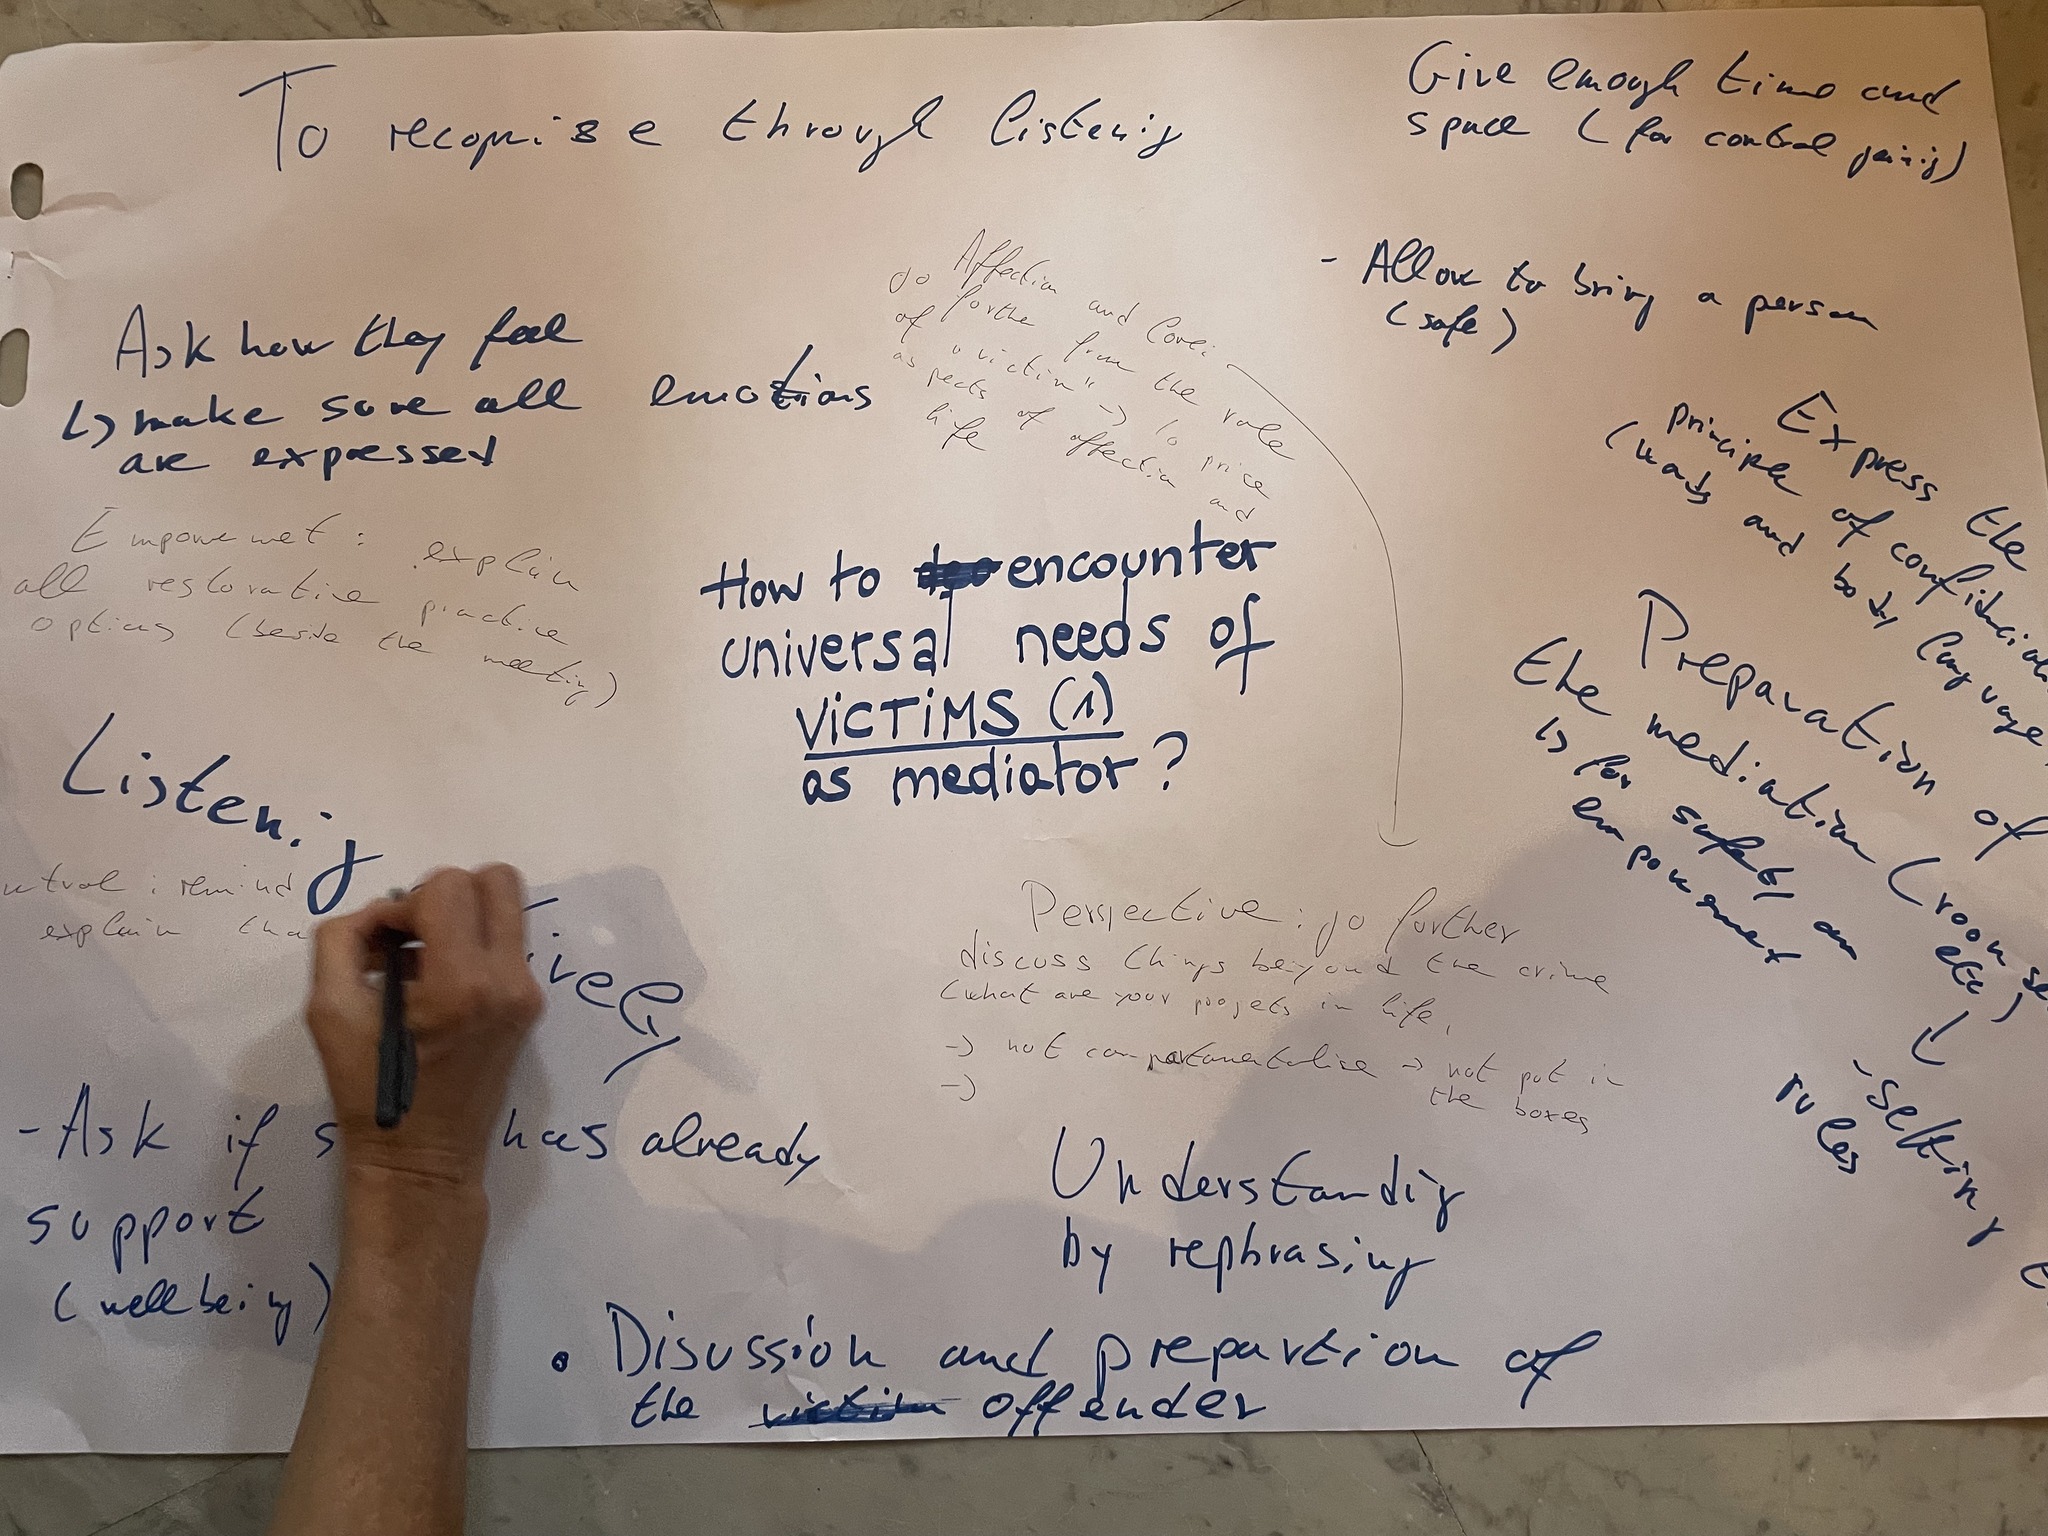 To recognise through listenig
Give enough time and
space (for control
- Allow to bring a person
(safe)
Ask how they feel
↳ make sure all emotions
are expressed
Affection and
go forthe from the role
of "victim" ->
aspects of affection and
life
Express the
principle of
(words and body language
Empowermet: explain
all restorative practice
options (beside the meeting)
How to encounter
universal needs of
VICTIMS (1)
as mediator?
Preparation of
the mediation (room
etc)
↳ for safety an
empowermet
- setting
rules
Listenig
remind
explain
Perspective: go further
discuss things beyond the crime
(what are your progets in life,
-> not compartamentalise -> not put in
the boxes
->
- Ask if has already
support
(wellbeing)
Understandig
by rephrasing
• Discussion and prepartion of
the victim offender